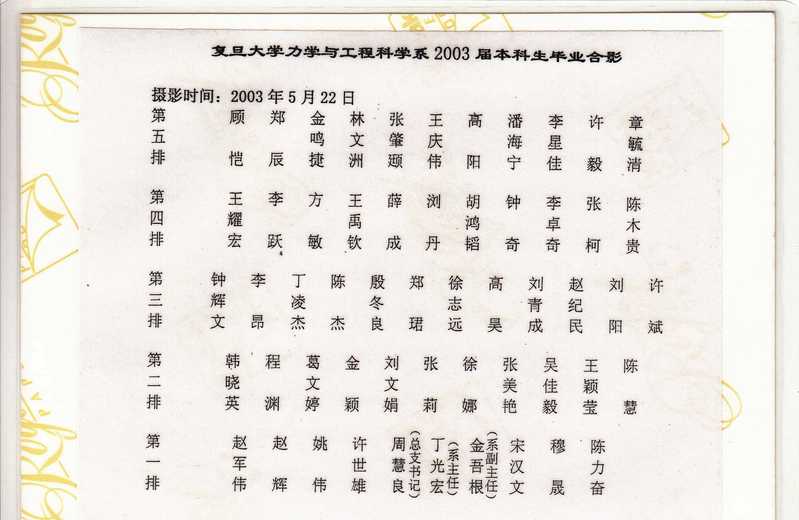 复旦大学力学与工程科学系2003届本科生毕业合影
摄影时间：2003年5月22日
第五排 顾恺 郑辰 金鸣捷 林文洲 张肇颋 王庆伟 高阳 潘海宁 李星佳 许毅 章毓清
第四排 王耀宏 李跃 方敏 王禹钦 薛成 浏丹 胡鸿韬 钟奇 李卓奇 张柯 陈木贵
第三排 钟辉文 李昂 丁凌杰 陈杰 殷冬良 郑珺 徐志远 高昊 刘青成 赵纪民 刘阳 许斌
第二排 韩晓英 程渊 葛文婷 金颖 刘文娟 张莉 徐娜 张美艳 吴佳毅 王颖莹 陈慧
第一排 赵军伟 赵辉 姚伟 许世雄 周慧良（总支书记） 丁光宏（系主任） 金吾根（系副主任） 宋汉文 穆晟 陈力奋